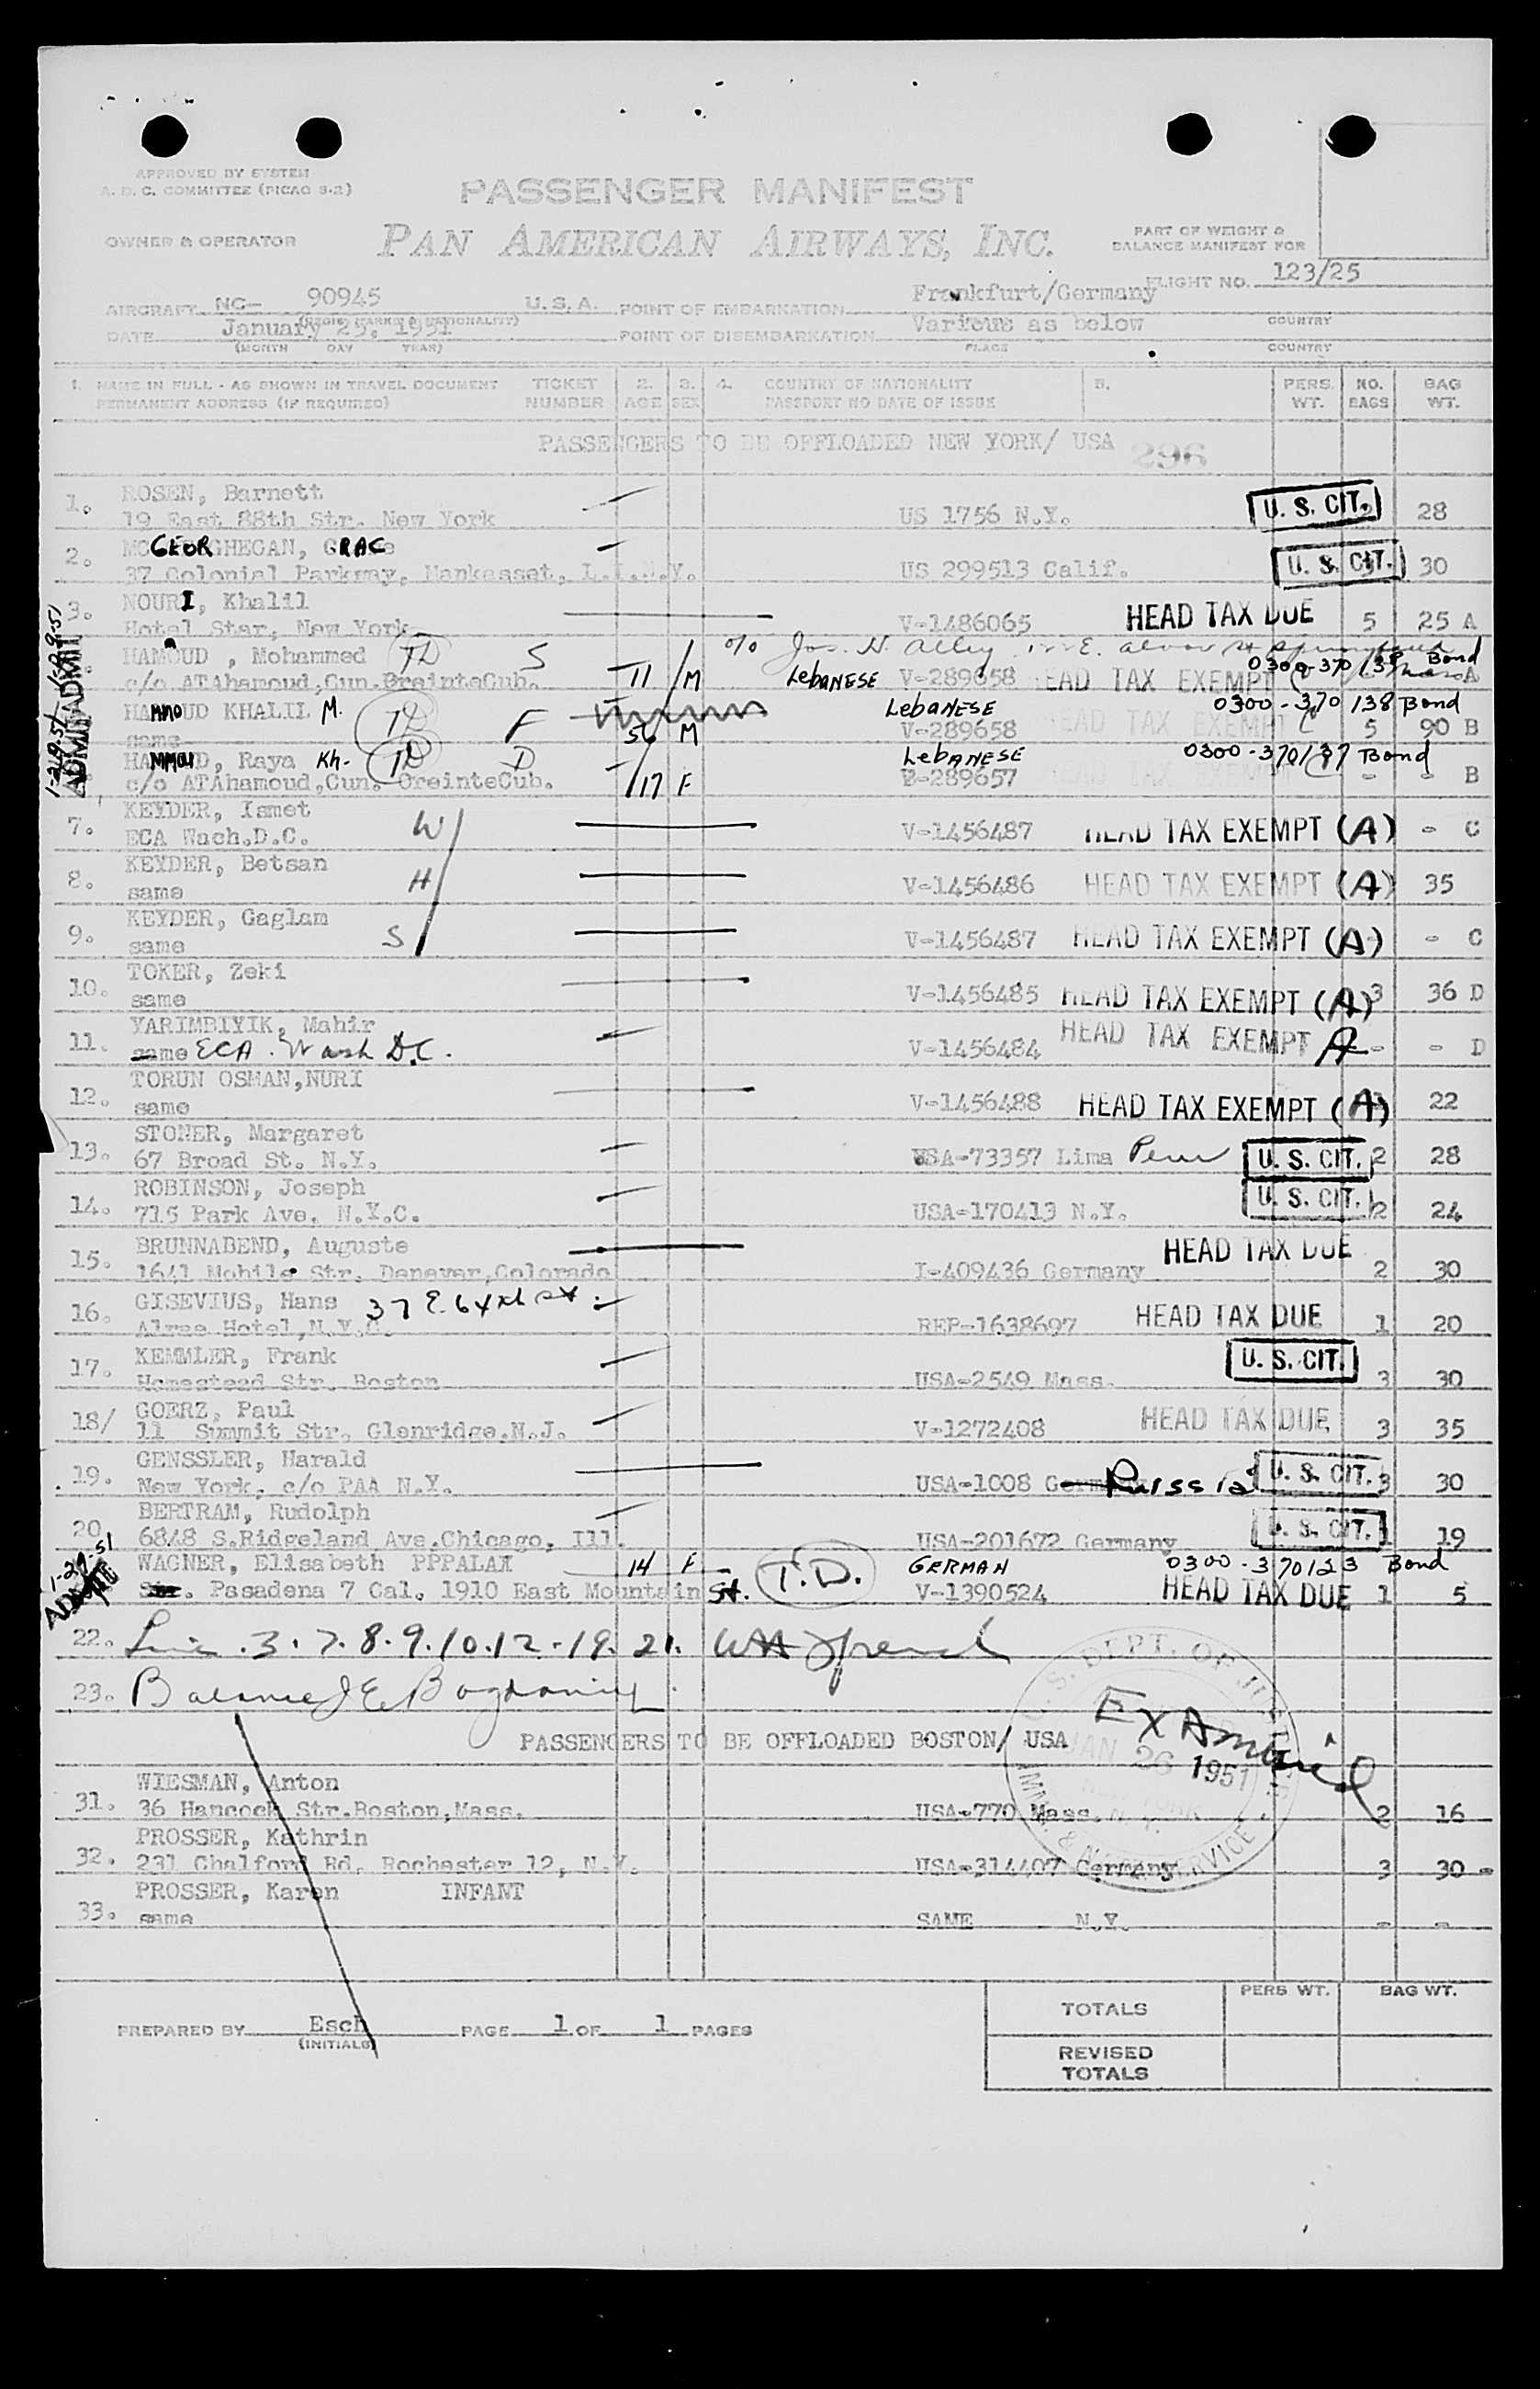 APPROVED BY SYSTEM
A. D. C. COMMITTEE (PICAO S-2)
PASSENGER MANIFEST
OWNER & OPERATOR
PAN AMERICAN AIRWAYS, INC.
PART OF WEIGHT &
BALANCE MANIFEST FOR
FLIGHT NO. 123/25
AIRCRAFT NC- 90945 U.S.A. POINT OF EMBARKATION Frankfurt/Germany
DATE January 25, 1951 POINT OF DISEMBARKATION Various as below COUNTRY
(MONTH DAY YEAR) PLACE COUNTRY
1. NAME IN FULL - AS SHOWN IN TRAVEL DOCUMENT TICKET 2. 3. 4. COUNTRY OF NATIONALITY 5. PERS. NO. BAG
PERMANENT ADDRESS (IF REQUIRED) NUMBER AGE SEX PASSPORT NO DATE OF ISSUE WT. BAGS WT.
PASSENGERS TO BE OFFLOADED NEW YORK/ USA 296
1. ROSEN, Barnett
19 East 88th Str. New York US 1756 N.Y. U. S. CIT. 28
2. GEOGHEGAN, GRAC
37 Colonial Parkway, Manhasset, L.I.N.Y. US 299513 Calif. U. S. CIT. 30
3. NOURI, Khalil
Hotel Star, New York V-1486065 HEAD TAX DUE 5 25 A
HAMOUD , Mohammed TD S c/o Jos. N. Alley
c/o ATAhamoud,Cun.OreinteCub. 11 M LEBANESE V-289658 HEAD TAX EXEMPT 0300-370138 Bond A
HAMMOUD KHALIL M. TD F LEBANESE 0300-370138 Bond
same 56 M V-289658 HEAD TAX EXEMPT 5 90 B
HAMMOUD, Raya Kh. TD D LEBANESE 0300-370137 Bond
c/o ATAhamoud,Cun. OreinteCub. 17 F B-289657 HEAD TAX EXEMPT - - B
7. KEYDER, Ismet W
ECA Wach.D.C. V-1456487 HEAD TAX EXEMPT (A) - C
8. KEYDER, Betsan H
same V-1456486 HEAD TAX EXEMPT (A) 35
9. KEYDER, Gaglam S
same V-1456487 HEAD TAX EXEMPT (A) - C
10. TOKER, Zeki
same V-1456485 HEAD TAX EXEMPT (A) 3 36 D
11. YARIMBIYIK, Mahir
same ECA. Wash D.C. V-1456484 HEAD TAX EXEMPT A - - D
12. TORUN OSMAN,NURI
same V-1456488 HEAD TAX EXEMPT (A) 22
13. STONER, Margaret
67 Broad St. N.Y. USA-73357 Lima Peru U. S. CIT. 2 28
14. ROBINSON, Joseph
715 Park Ave. N.Y.C. USA-170413 N.Y. U. S. CIT. 2 24
15. BRUNNABEND, Auguste HEAD TAX DUE
1641 Mobile Str. Denever,Colorado I-409436 Germany 2 30
16. GISEVIUS, Hans 37 E. 64th St.
Alrae Hotel,N.Y.C. REP-1638697 HEAD TAX DUE 1 20
17. KEMMLER, Frank U. S. CIT.
Homestead Str. Boston USA-2549 Mass. 3 30
18/ GOERZ, Paul
11 Summit Str. Glenridge.N.J. V-1272408 HEAD TAX DUE 3 35
19. GENSSLER, Harald
New York, c/o PAA N.Y. USA-1008 Germany Russia U. S. CIT. 3 30
20. BERTRAM, Rudolph
6848 S.Ridgeland Ave.Chicago, Ill. USA-201672 Germany U. S. CIT. 19
1-29-51 ADMIT WAGNER, Elisabeth PPPALAX 14 F T.D. GERMAN 0300-370123 Bond
Pasadena 7 Cal. 1910 East Mountain St. V-1390524 HEAD TAX DUE 1 5
22. Line .3.7.8.9.10.12-19.21.
23. Balance J E
PASSENGERS TO BE OFFLOADED BOSTON/ USA
U.S. DEPT. OF JUSTICE
JAN 26 1951
IMM. & NATZ. SERVICE
31. WIESMAN, Anton
36 Hancock Str.Boston,Mass. USA-770 Mass. 2 16
32. PROSSER, Kathrin
231 Chalford Rd. Rochester 12, N.Y. USA-314407 Germany 3 30 -
33. PROSSER, Karen INFANT
same SAME N.Y. - -
PREPARED BY Esch PAGE 1 OF 1 PAGES
(INITIALS)
PERS WT. BAG WT.
TOTALS
REVISED
TOTALS